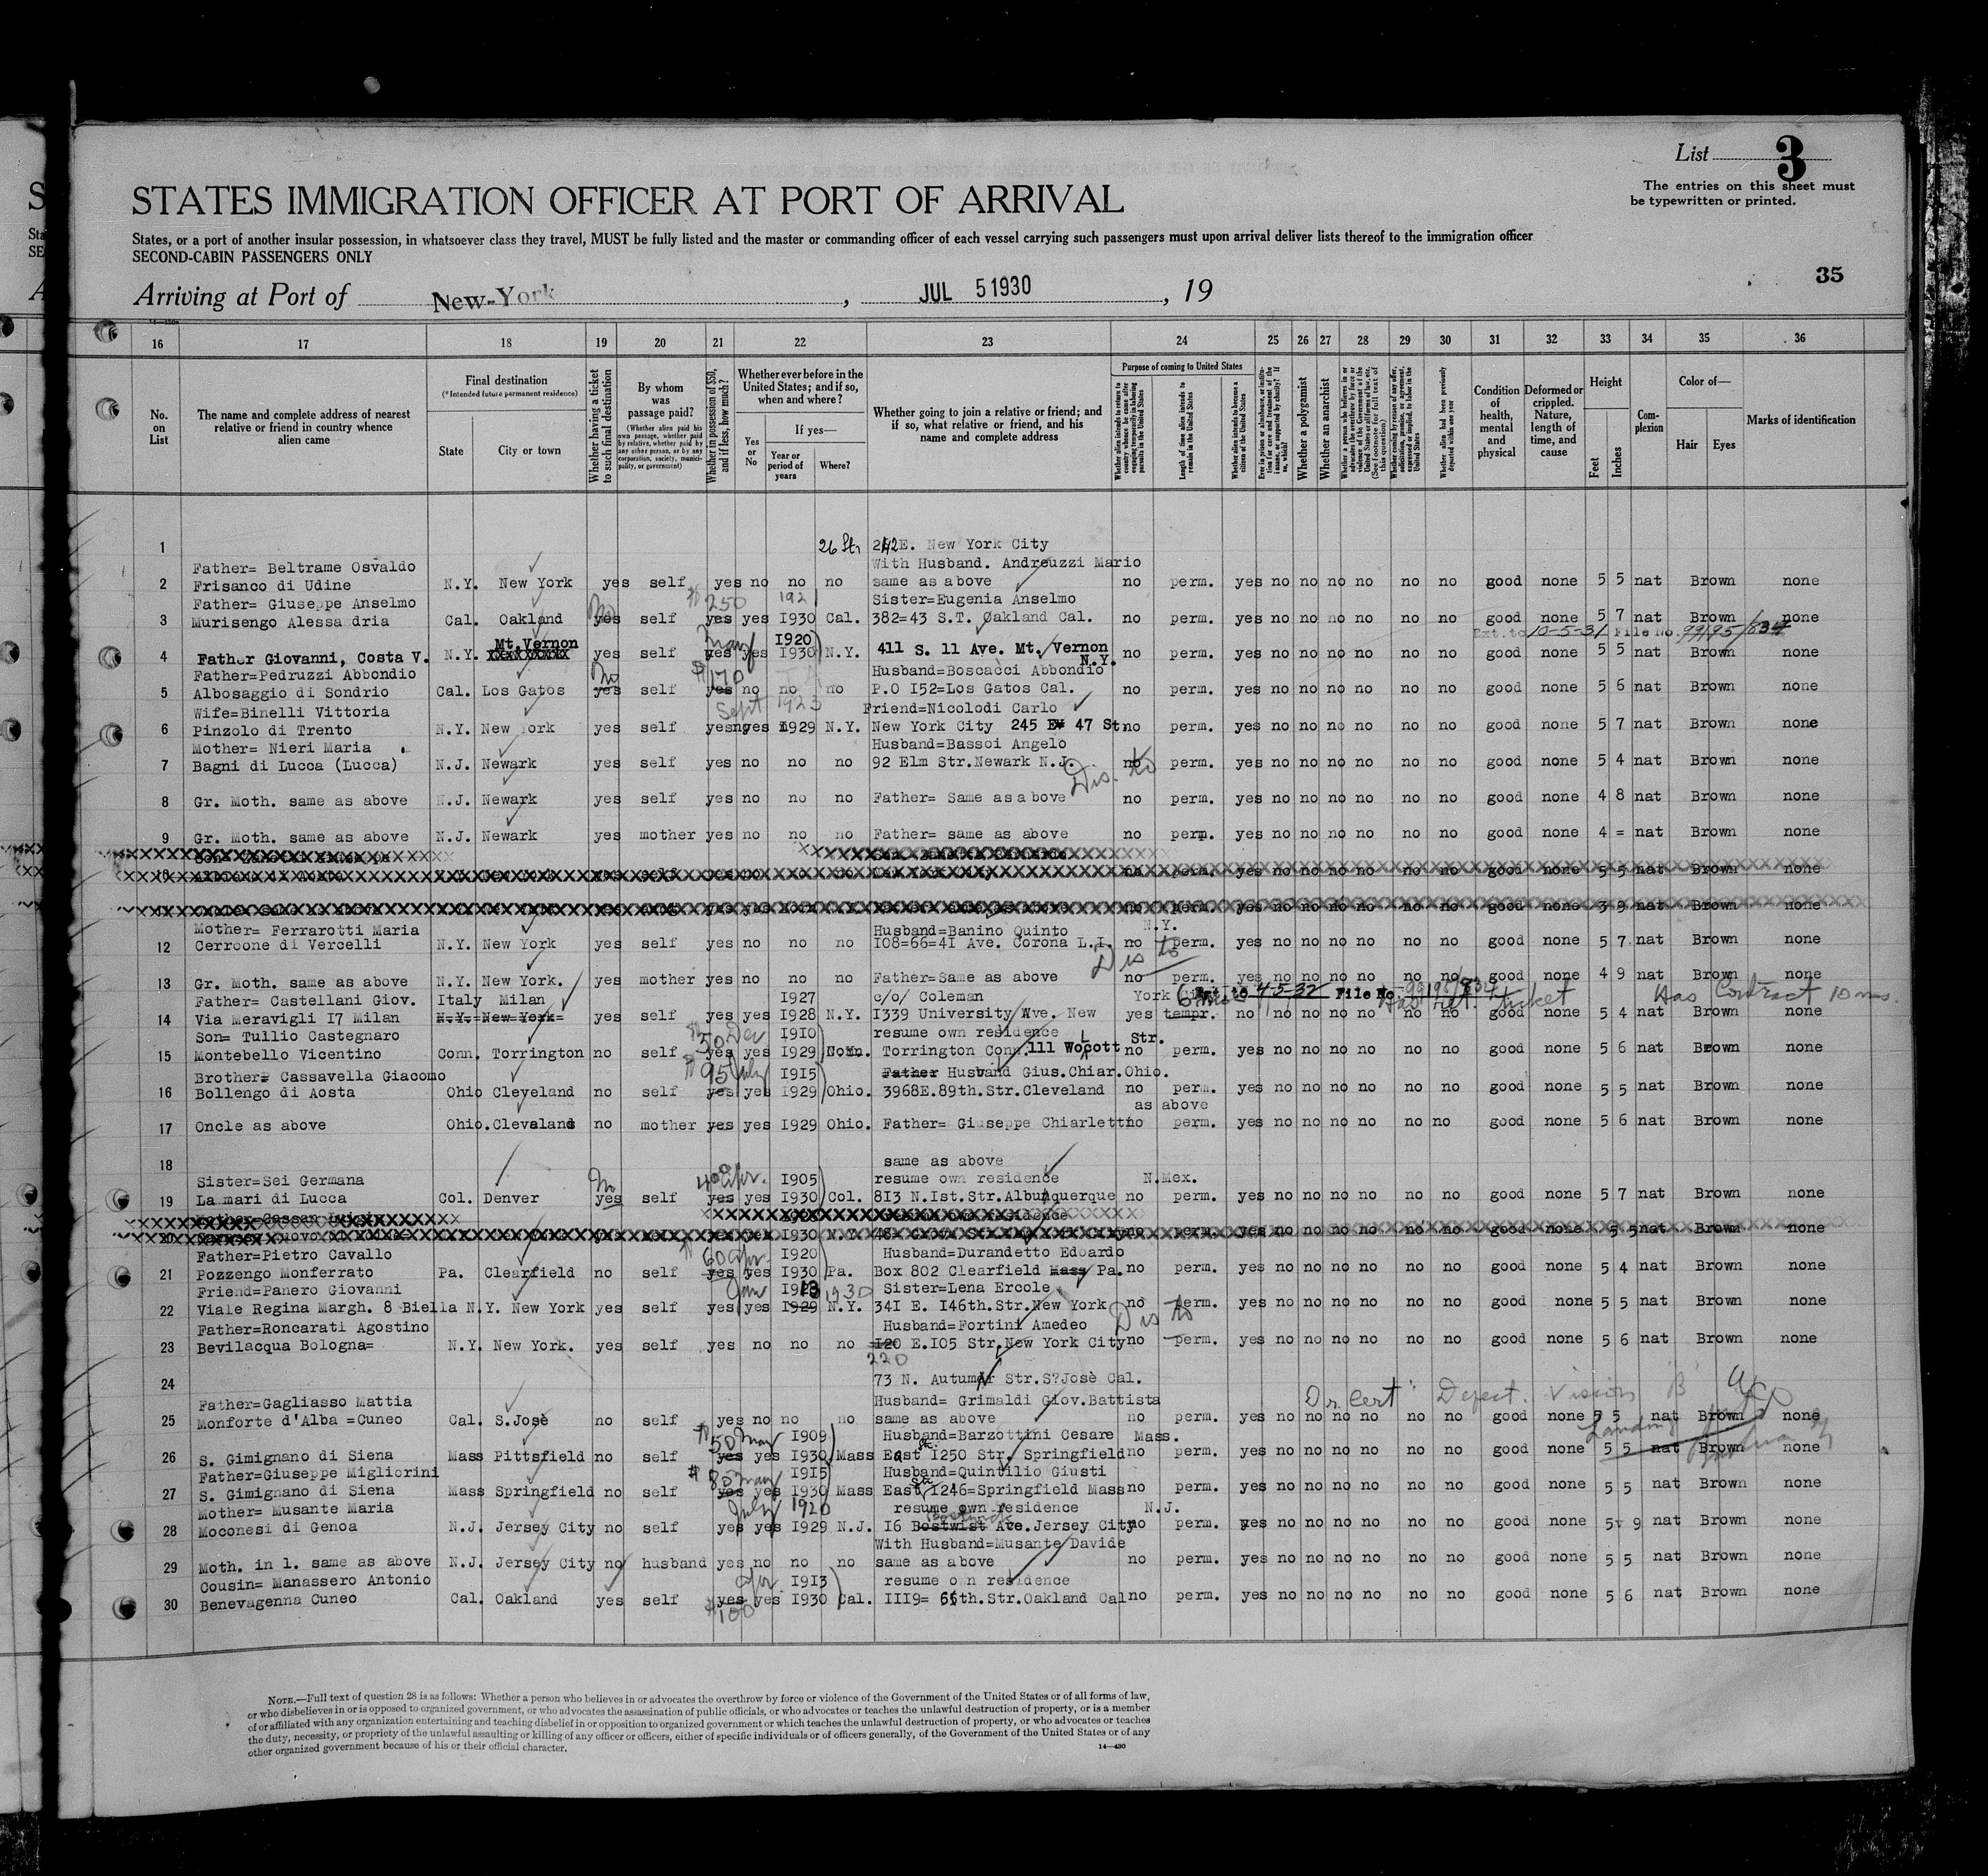 List 3
The entries on this sheet must
be typewritten or printed.
STATES IMMIGRATION OFFICER AT PORT OF ARRIVAL
States, or a port of another insular possession, in whatsoever class they travel, MUST be fully listed and the master or commanding officer of each vessel carrying such passengers must upon arrival deliver lists thereof to the immigration officer
SECOND-CABIN PASSENGERS ONLY
35
Arriving at Port of New-York, JUL 5 1930, 19
16 17 18 19 20 21 22 23 24 25 26 27 28 29 30 31 32 33 34 35 36
No. on List
The name and complete address of nearest relative or friend in country whence alien came
Final destination
(*Intended future permanent residence)
State City or town
Whether having a ticket to such final destination
By whom was passage paid?
(Whether alien paid his own passage, whether paid by relative, whether paid by any other person, or by any corporation, society, municipality, or government)
Whether in possession of $50, and if less, how much?
Whether ever before in the United States; and if so, when and where?
Yes or No
If yes—
Year or period of years Where?
Whether going to join a relative or friend; and if so, what relative or friend, and his name and complete address
Purpose of coming to United States
Length of time alien intends to remain in the United States
Whether alien intends to become a citizen of the United States
Whether a polygamist
Whether an anarchist
Whether alien had been previously deported within one year
Condition of health, mental and physical
Deformed or crippled. Nature, length of time, and cause
Height
Feet Inches
Complexion
Color of—
Hair Eyes
Marks of identification
1 26 Str 242E. New York City
Father= Beltrame Osvaldo With Husband. Andreuzzi Mario
2 Frisanco di Udine N.Y. New York yes self yes no no no same as above no perm. yes no no no no no no good none 5 5 nat Brown none
Father= Giuseppe Anselmo $250 192 Sister=Eugenia Anselmo
3 Murisengo Alessa dria Cal. Oakland No yes self yes yes I930 Cal. 382=43 S.T. Oakland Cal. no perm. yes no no no no no no good none 5 7 nat Brown none
Mt.Vernon I920 Ext. to 10-5-31 File No. 99195/834
4 Father Giovanni, Costa V. N.Y. yes self yes yes I930 N.Y. 411 S. 11 Ave. Mt. Vernon N.Y. no perm. yes no no no no no no good none 5 5 nat Brown none
Father=Pedruzzi Abbondio No $170 Husband=Boscacci Abbondio
5 Albosaggio di Sondrio Cal. Los Gatos yes self yes no no no P.O I52=Los Gatos Cal. no perm. yes no no no no no no good none 5 6 nat Brown none
Wife=Binelli Vittoria Sept 1923 Friend=Nicolodi Carlo
6 Pinzolo di Trento N.Y. New York yes self yes yes I929 N.Y. New York City 245 E 47 St. no perm. yes no no no no no no good none 5 7 nat Brown none
Mother= Nieri Maria Husband=Bassoi Angelo
7 Bagni di Lucca (Lucca) N.J. Newark yes self yes no no no 92 Elm Str.Newark N.J. Dis. to no perm. yes no no no no no no good none 5 4 nat Brown none
8 Gr. Moth. same as above N.J. Newark yes self yes no no no Father= Same as above no perm. yes no no no no no no good none 4 8 nat Brown none
9 Gr. Moth. same as above N.J. Newark yes mother yes no no no Father= same as above no perm. yes no no no no no no good none 4 = nat Brown none
10 no perm. yes no no no no no no good none 5 5 nat Brown none
no perm. yes no no no no no no good none 3 9 nat Brown none
Mother= Ferrarotti Maria Husband=Banino Quinto N.Y.
12 Cerrcone di Vercelli N.Y. New York yes self yes no no no I08=66=4I Ave. Corona L.I. no perm. yes no no no no no no good none 5 7 nat Brown none
Dis to
13 Gr. Moth. same as above N.Y. New York. yes mother yes no no no Father=Same as above no perm. yes no no no no no no good none 4 9 nat Brown none
Father= Castellani Giov. Italy Milan I927 c/o/ Coleman York 6 mos to 4-5-32 File No. 99195/834 Has ret. ticket Has Contract 10 mos.
14 Via Meravigli I7 Milan N.Y. New York yes self yes yes I928 N.Y. I339 University Ave. New yes tempr. no no no no no no no good none 5 4 nat Brown none
Son= Tullio Castegnaro $50 Dec I9I0 resume own residence
15 Montebello Vicentino Conn. Torrington no self yes yes I929 Conn. Torrington Conn. 111 Wolcott Str. no perm. yes no no no no no no good none 5 6 nat Brown none
Brother= Cassavella Giacomo $95 July I9I5 Father Husband Gius.Chiar.Ohio.
16 Bollengo di Aosta Ohio Cleveland no self yes yes I929 Ohio. 3968E.89th.Str.Cleveland no perm. yes no no no no no no good none 5 5 nat Brown none
as above
17 Oncle as above Ohio.Cleveland no mother yes yes I929 Ohio. Father= Giuseppe Chiarletti no perm. yes no no no no no no good none 5 6 nat Brown none
18 same as above
Sister=Sei Germana No 400 Apr. I905 resume own residence N.Mex.
19 Lammari di Lucca Col. Denver yes self yes yes I930 Col. 8I3 N.Ist.Str.Albuquerque no perm. yes no no no no no no good none 5 7 nat Brown none
20 I930 N.Y. no perm. yes no no no no no no good none 5 5 nat Brown none
Father=Pietro Cavallo $60 Apr. I920 Husband=Durandetto Edoardo
21 Pozzengo Monferrato Pa. Clearfield no self yes yes I930 Pa. Box 802 Clearfield Mass Pa. no perm. yes no no no no no no good none 5 4 nat Brown none
Friend=Panero Giovanni Jan 1913 1930 Sister=Lena Ercole
22 Viale Regina Margh. 8 Biella N.Y. New York yes self yes yes I929 N.Y. 34I E. I46th.Str.New York no perm. yes no no no no no no good none 5 5 nat Brown none
Father=Roncarati Agostino Husband=Fortini Amedeo Dis to
23 Bevilacqua Bologna= N.Y. New York. yes self yes no no no I20 E.I05 Str.New York City no perm. yes no no no no no no good none 5 6 nat Brown none
220
24 73 N. Autumn Str.S?Josè Cal.
Father=Gagliasso Mattia Husband= Grimaldi Giov.Battista Dr. Cert Defect. Vision B
25 Monforte d'Alba =Cuneo Cal. S.Josè no self yes no no no same as above no perm. yes no no no no no no good none 5 5 nat Brown none
$50 May I909 Husband=Barzottini Cesare Mass. Landing
26 S. Gimignano di Siena Mass Pittsfield no self yes yes I930 Mass East I250 Str. Springfield no perm. yes no no no no no no good none 5 5 nat Brown none
Father=Giuseppe Migliorini $80 May I9I5 Husband=Quintilio Giusti
27 S. Gimignano di Siena Mass Springfield no self yes yes I930 Mass East I246=Springfield Mass no perm. yes no no no no no no good none 5 5 nat Brown none
Mother= Musante Maria July 1920 resume own residence N.J.
28 Moconesi di Genoa N.J. Jersey City no self yes yes I929 N.J. I6 Bostwist Ave.Jersey City no perm. yes no no no no no no good none 5 9 nat Brown none
With Husband=Musante Davide
29 Moth. in l. same as above N.J. Jersey City no husband yes no no no same as above no perm. yes no no no no no no good none 5 5 nat Brown none
Cousin= Manassero Antonio Apr. I9I3 resume own residence
30 Benevagenna Cuneo Cal. Oakland yes self yes yes I930 Cal. III9= 65th.Str.Oakland Cal no perm. yes no no no no no no good none 5 6 nat Brown none
$100
NOTE.—Full text of question 28 is as follows: Whether a person who believes in or advocates the overthrow by force or violence of the Government of the United States or of all forms of law,
or who disbelieves in or is opposed to organized government, or who advocates the assassination of public officials, or who advocates or teaches the unlawful destruction of property, or is a member
of or affiliated with any organization entertaining and teaching disbelief in or opposition to organized government or which teaches the unlawful destruction of property, or who advocates or teaches
the duty, necessity, or propriety of the unlawful assaulting or killing of any officer or officers, either of specific individuals or of officers generally, of the Government of the United States or of any
other organized government because of his or their official character.
14—430